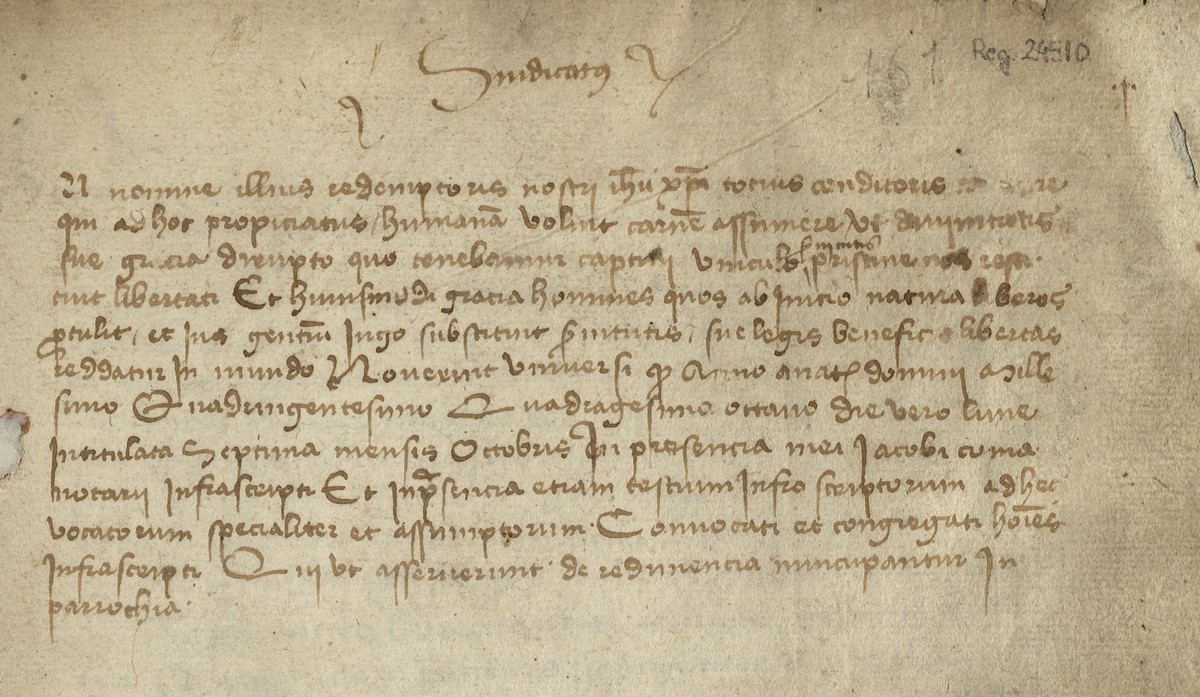 Sindicatus
161 Reg. 24510
N nomine illius redemptoris nostri ihu xpi tocius conditoris
qui ad hoc propiciatus humana voluit carne assumere ut divinitatis
sue gracia dirupto quo tenebamur captivi vinculo servitutis pristine nos resti
tuit libertati Et huiusmodi gracia homines quos ab Inicio natura liberos
protulit, et ius gentiu Iugo substituit svitutis, sue legis benefic libertas
reddatur In mundo Noverint universi q Anno a nat domini Mille
simo Quadringentesimo Quadragesimo octavo die vero lune
Intitulata Septima mensis Octobris In presencia mei Jacobi coma
notarii Infrascripti Et In psencia etiam testium Infra scriptorum ad hec
vocatorum specialiter et assumptorum. Convocati et congregati hoies
Infrascripti Qui ut asseruerunt de redimencia nuncupantur In
parrochia